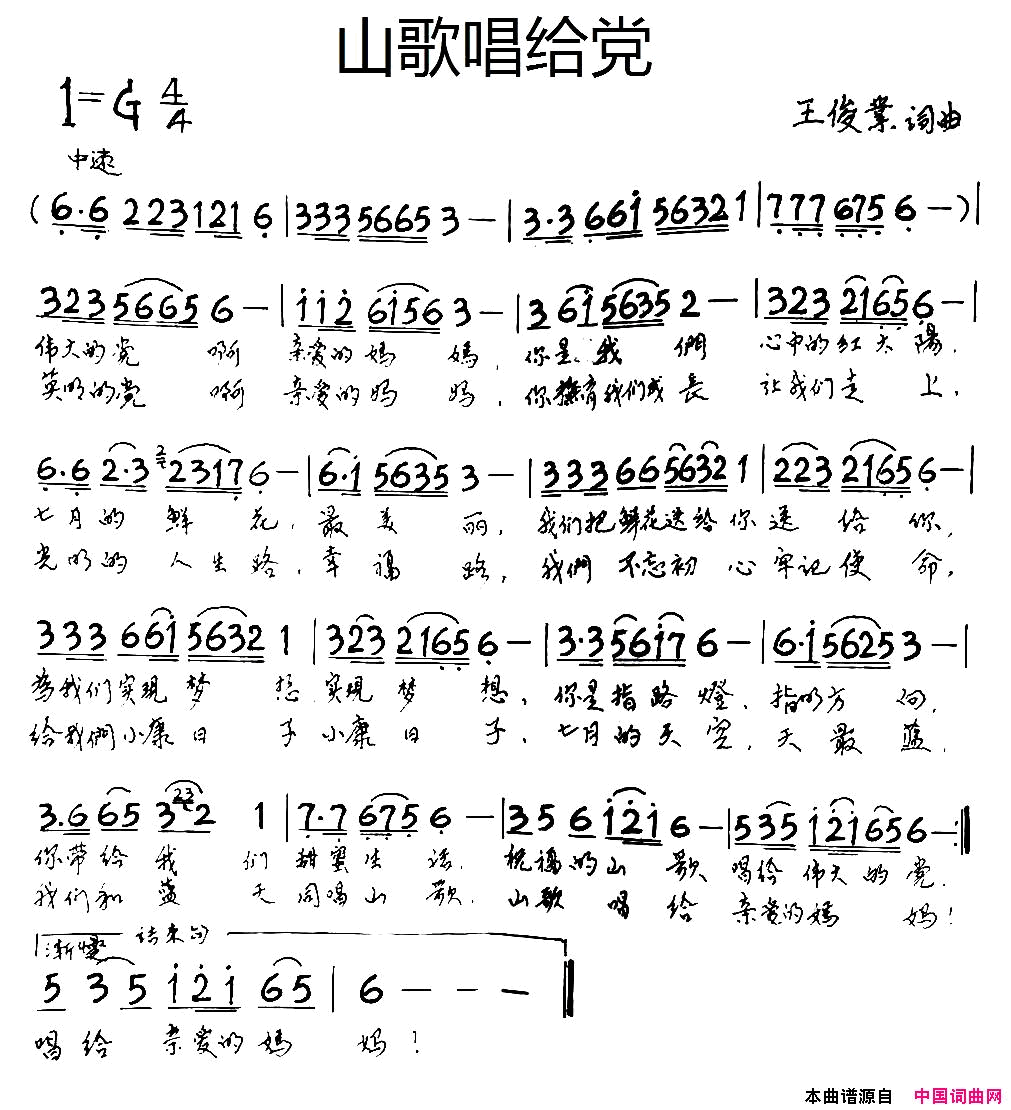 山歌唱给党
1=G 4/4
王俊業 词曲
中速
(6·6 223121 6 | 33356665 3 — | 3·3 661 56321 | 777 675 6 — ) |
323 5665 6 — | 112 6156 3 — | 3 61 5635 2 — | 323 2165 6 — |
伟大的党 啊 亲爱的妈 妈，你是我 們 心中的红太 陽，
英明的党 啊 亲爱的妈 妈，你撫育我们成長 让我们走 上，
6·6 2·3 2 2317 6 — | 6·1 5635 3 — | 333 66 5632 1 | 223 2165 6 — |
七月的 鮮 花，最美 丽，我们把鲜花送给你送 给 你，
光明的 人生路，幸福 路，我們 不忘初 心牢记使 命，
333 661 5632 1 | 323 2165 6 — | 3·3 5617 6 — | 6·1 5625 3 — |
為我们实现梦 想 实现梦 想，你是指路燈，指明方 向，
给我們小康日 子 小康日 子，七月的天空，天最 蓝，
3·6 65 3 23 2 1 | 7·7 675 6 — | 35 6 121 6 — | 535 121 65 6 — :|
你带给 我 们 甜蜜生 活，祝福的山 歌 唱给 伟大的党，
我们和蓝 天 同唱山 歌，山歌 唱 给 亲爱的妈 妈！
渐慢 结束句
5 35 121 65 | 6 — — — ‖
唱给 亲爱的妈 妈！
本曲谱源自 中国词曲网